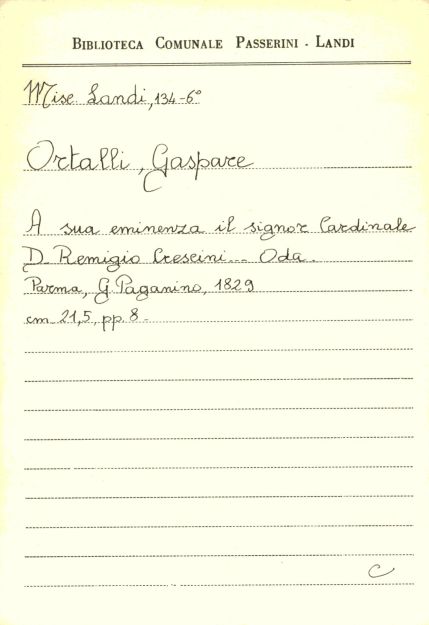 BIBLIOTECA COMUNALE PASSERINI - LANDI
Misc. Landi, 134-6°
Ortalli, Gaspare
A sua eminenza il signor Cardinale
D. Remigio Crescini... Oda.
Parma, G. Paganino, 1829
cm. 21,5, pp. 8.
C